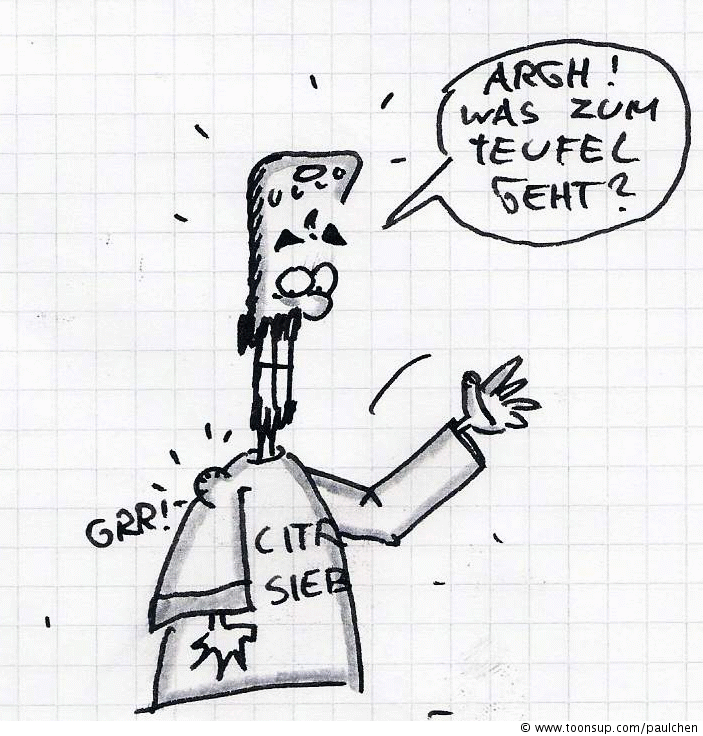 ARGH!
WAS ZUM
TEUFEL
GEHT?
GRR!
CITR
SIEB
© www.toonsup.com/paulchen